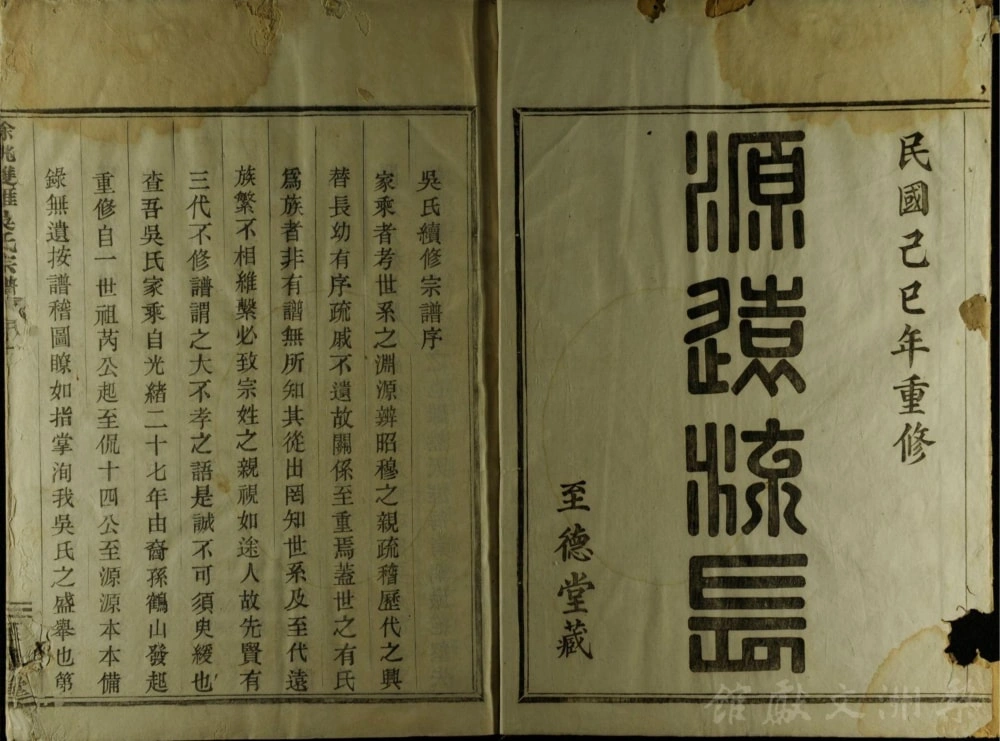 民國己巳年重修
源遠流長
至德堂藏
吳氏續修宗譜序
家乘者考世系之淵源辨昭穆之親疏稽歷代之興
替長幼有序疏戚不遺故關係至重焉蓋世之有氏
爲族者非有譜無所知其從出罔知世系及至代遠
族繁不相維繫必致宗姓之親視如途人故先賢有
三代不修譜謂之大不孝之語是誠不可須臾緩也
查吾吳氏家乘自光緒二十七年由裔孫鶴山發起
重修自一世祖芮公起至侃十四公至源源本本備
錄無遺按譜稽圖瞭如指掌洵我吳氏之盛舉也第
餘姚雙雁吳氏宗譜
梨洲文獻館